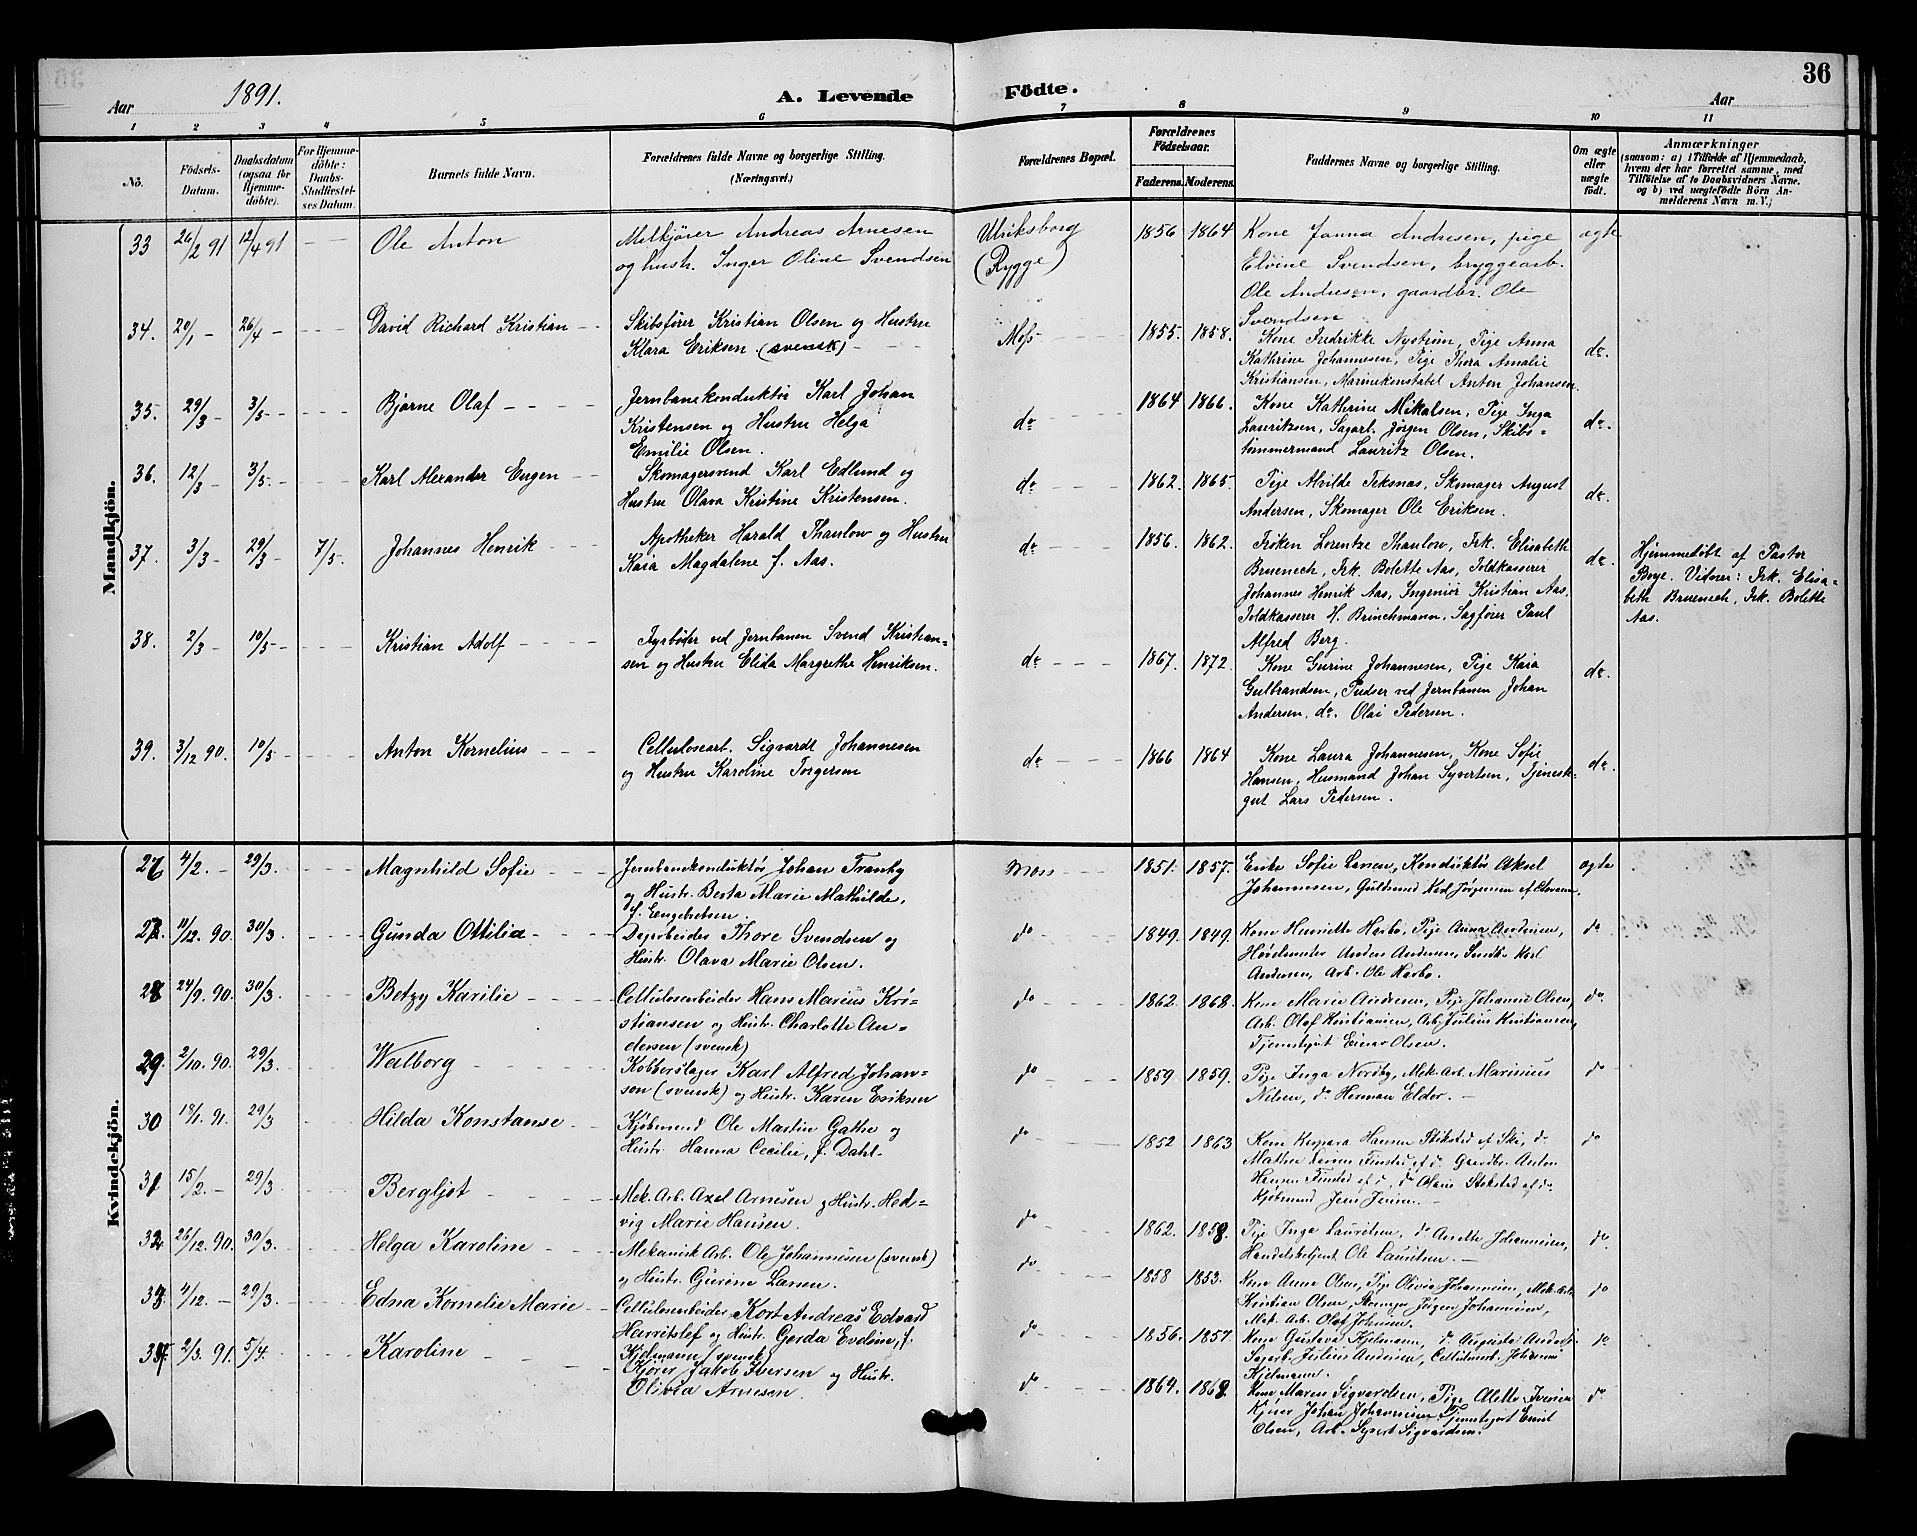 36
Aar 1891.
A. Levende Födte.
Aar
1 2 3 4 5 6 7 8 9 10 11
No.
Födsels-Datum.
Daabsdatum (ogsaa for Hjemme-döbte).
For Hjemme-döbte: Daabs-Stadfæstel-ses Datum.
Barnets fulde Navn.
Forældrenes fulde Navne og borgerlige Stilling.
(Næringsvei.)
Forældrenes Bopæl.
Forældrenes Födselsaar.
Faderens. Moderens.
Faddernes Navne og borgerlige Stilling.
Om ægte eller uægte födt.
Anmærkninger
(saasom: a) i Tilfælde af Hjemmedaab, hvem der har forrettet samme, med Tilföielse af to Daabsvidners Navne, og b) ved uægtefödte Börn An-melderens Navn m. V.;)
Mandkjön.
33 26/2 91 12/4 91 Ole Anton
Melkjører Andreas Arnesen
og hustr. Inger Oline Svendsen
Ulriksborg
(Rygge)
1856 1864
Kone Janna Andresen, pige
Elvine Svendsen, bryggearb.
Ole Andresen, gaardbr. Ole
Svendsen
ægte
34. 20/1 - 26/4 David Richard Kristian
Skibsfører Kristian Olsen og Hustru
Klara Eriksen (svensk)
Moss
1855. 1858.
Kone Fredrikke Nystrøm, Pige Anna
Kathrine Johannesen, Pige Thora Amalie
Kristiansen, Marinekonstabel Anton Johansen
do.
35. 29/3 - 3/5 - Bjarne Olaf
Jernbanekonduktør Karl Johan
Kristensen og Hustru Helga
Emilie Olsen.
do
1864 1866.
Kone Kathrine Mikalsen, Pige Inga
Lauritzen, Sagarb. Jørgen Olsen, Skibs-
tømmermand Lauritz Olsen.
do.
36. 12/3 3/5 - Karl Alexander Eugen
Skomagersvend Karl Edlund og
Hustru Olava Kristine Kristensen.
do
1862. 1865.
Pige Alvilde Teksnæs, Skomager August
Andersen, Skomager Ole Eriksen.
do.
37. 3/3 - 29/3 - 7/5 - Johannes Henrik
Apotheker Harald Thaulow og Hustru
Kara Magdalene f. Aas.
do
1856. 1862.
Frøken Lorentze Thaulow, Frk. Elisabeth
Bruenech, Frk. Bolette Aas, Toldkasserer
Johannes Henrik Aas, Ingeniør Kristian Aas,
Toldkasserer H. Brinchmann, Sagfører Paul
Alfred Berg.
do.
Hjemmedøbt af Pastor
Boye. Vidner: Frk. Elisa-
beth Bruenech, Frk. Bolette
Aas.
38. 2/3 - 10/5 - Kristian Adolf
Fyrbøder ved Jernbanen Svend Kristian-
sen og Hustru Elida Margrethe Henriksen.
do
1867. 1872.
Kone Gurine Johannesen, Pige Kaia
Gulbrandsen, Pudser ved Jernbanen Johan
Andersen, do. Olai Pedersen.
do.
39. 3/12 90. 10/5 - Anton Kornelius
Cellulosearb. Sigvardt Johannesen
og Hustru Karoline Torgersen
do
1866 1864
Kone Laura Johannesen, Kone Sofie
Hansen, Husmand Johan Syvertsen, Tjeneste-
gut Lars Pedersen.
do.
Kvindekjön.
26 4/2. - 29/3. Magnhild Sofie
Jernbanekonduktør Johan Tranby
og Hustr. Berta Marie Mathilde,
f. Engebretsen.
Moss
1851. 1857.
Enke Sofie Larsen, Konduktør Aksel
Johannesen, Guldsmed Karl Jørgensen
ægte
27. 11/12. 90. 30/3. Gunda Ottilia
Dagarbeider Thore Svendsen og
Hustr. Olava Marie Olsen.
do
1849. 1849.
Kone Henriette Harbo, Pige Anna Andersen,
Anders Andersen, Karl
Andersen, Arb. Ole Harbo.
do
28 24/9. 90. 30/3. Betzy Karilie
Cellulosearbeider Hans Marius Kri-
stiansen og Hustr. Charlotte An-
dersen (svensk)
do
1862. 1868.
Kone Marie Andresen, Pige Johanne Olsen,
Arb. Olaf Kristiansen, Arb. Julius Kristiansen,
Tjenestgut Einar Olsen.
do.
29. 2/10. 90. 29/3. Walborg
Kobberslager Karl Alfred Johan-
son (svensk) og Hustr. Karen Eriksen
do
1859. 1859.
Pige Inga Nordby, Mek. Arb. Marinius
Nilsen, do Herman Elder.
do
30 18/1. 91. 29/3 Hilda Konstanse
Kjøbmand Ole Martin Gathe og
Hustr. Hanna Cecilie, f. Dahl.
do
1852 1863
Kone Hansen Stiksted af Ski, do
Mathea Larsen Finstad af do, Gaardbr. Anton
Hansen Finsted af do, do Maris Stiksted af do
Kjøbmand Jens Jensen.
do
31 15/2. - 29/3. Bergljot
Mek. Arb. Axel Arnesen og Hustr. Hed-
vig Marie Hansen.
do
1862. 1858.
Pige Inga Lauritsen, do Anette Johannesen,
Handelsbetjent Ole Lauritsen.
do.
32 26/12. 90. 30/3. Helga Karoline
Mekanisk Arb. Ole Johannesen (svensk)
og Hustr. Gurine Larsen.
do
1858 1853.
Kone Anna Olsen, Pige Olivia Johannesen, Mek. Arb.
Kristian Olsen, Jørgen Johannesen,
Mek. Arb. Olaf Johnsen.
do
33. 4/12. - 29/3. Edna Kornelie Marie
Cellulosearbeider Kort Andreas Edvard
Harritslef og Hustr. Gerda Eveline, f.
Kjelmann (svensk)
do
1856. 1857.
Kone Gustava Kjelmann, do Auguste Anders.,
Sagarb. Julius Andersen, Cellulosearb. Johannes
Kjelmann.
do
34. 2/3. 91. 5/4. Karoline
Kjører Jakob Iversen og Hustr.
Olivia Arnesen.
do
1864. 1862.
Kone Maren Sigvardsen, Pige Alette Iversen
Kjører Johan Johannesen, Tjenestgut Emil
Olsen, Arb. Syvert Sigvardsen.
do